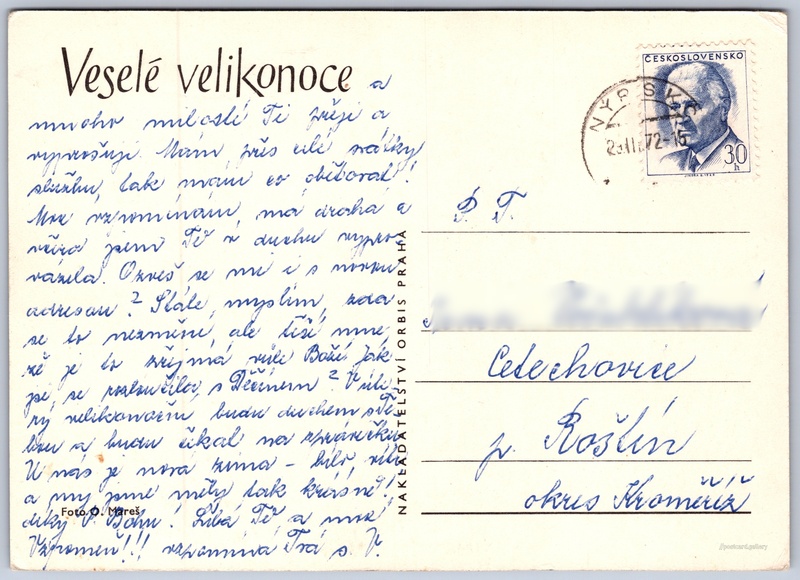 Veselé velikonoce a
mnoho milostí Ti přeji a
vyprošuji. Mám přes celé svátky
službu, tak mám co obětovat!
Moc vzpomínám, má drahá a
včera jsem Tě v duchu vypro-
vázela. Ozveš se mi i s novou
adresou? Stále myslím, zda
se to nezmění, ale těší mne,
že je to zřejmá vůle Boží. Jak
jsi se rozloučila s Děčínem? V úte-
rý velikonoční budu duchem s Te-
bou a budu čekat na zprávičku.
U nás je nová zima – bílo,
a my jsme měly tak krásně!
díky P. Bohu! Líbá Tě a moc
Vzpomeň!!! vzpomíná Tvá s. V.
Foto O. Mareš
NAKLADATELSTVÍ ORBIS PRAHA
ČESKOSLOVENSKO
30 h
NÝRSKO
72-15
P. T.
Cetechovice
p. Roštín
okres Kroměříž
postcard.gallery